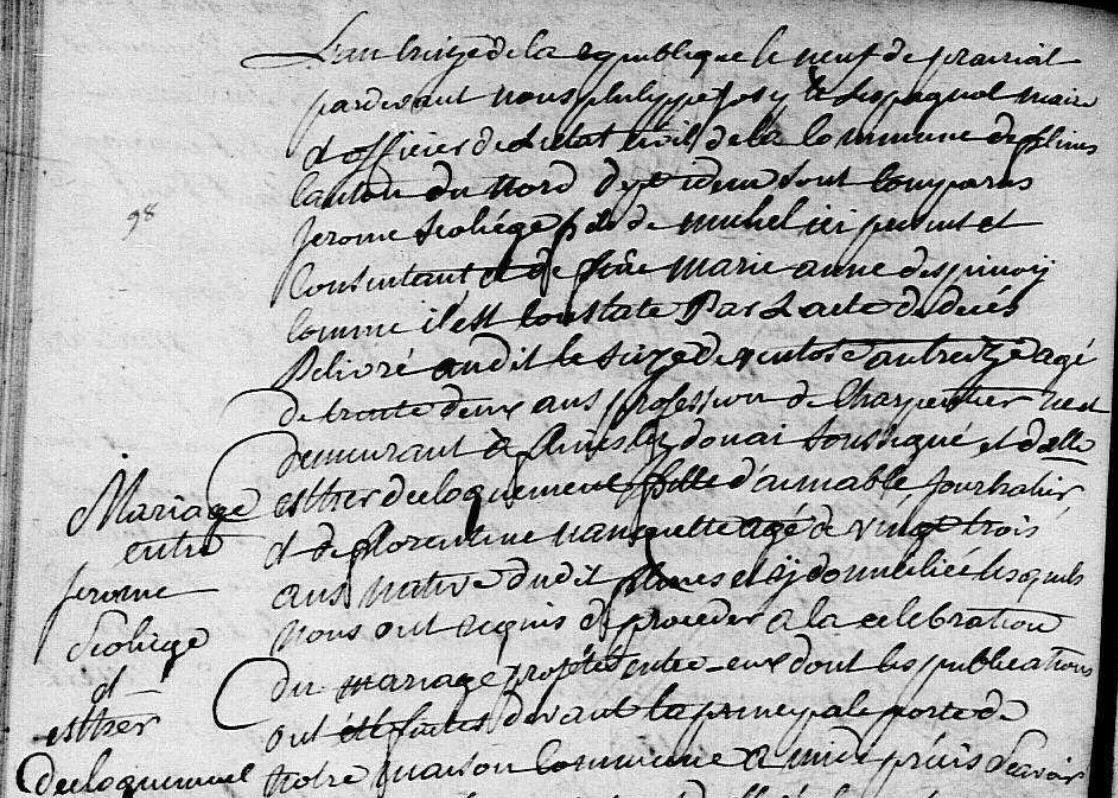 L'an treize de la republique le neuf de prairial
pardevant nous philippe josy Lespagnol maire
et officier de Letat civil de la Commune de flines
Canton du Nord dept idem sont Comparus
98
jerome Scoliége fils de michel ici present et
Consentant et de feüe marie anne despinoy
Comme il est Constaté Par L'acte de décés
Delivré audit le seize de ventose an treize agé
de trente deux ans profession de Charpentier né et
demeurant à flines lez douai Soussigné et d'elle
esther decloquement fille d'aimable journalier
et de florentine nanquette agé de vingt trois
ans native dudit flines et y domiciliée lesquels
nous ont requis de proceder a la celebration
du mariage projetté entre-eux dont les publications
ont été faites devant la principale porte de
notre maison Commune a midi précis Scavoir
Mariage
entre
jerome
Scoliége
et
esther
decloquement